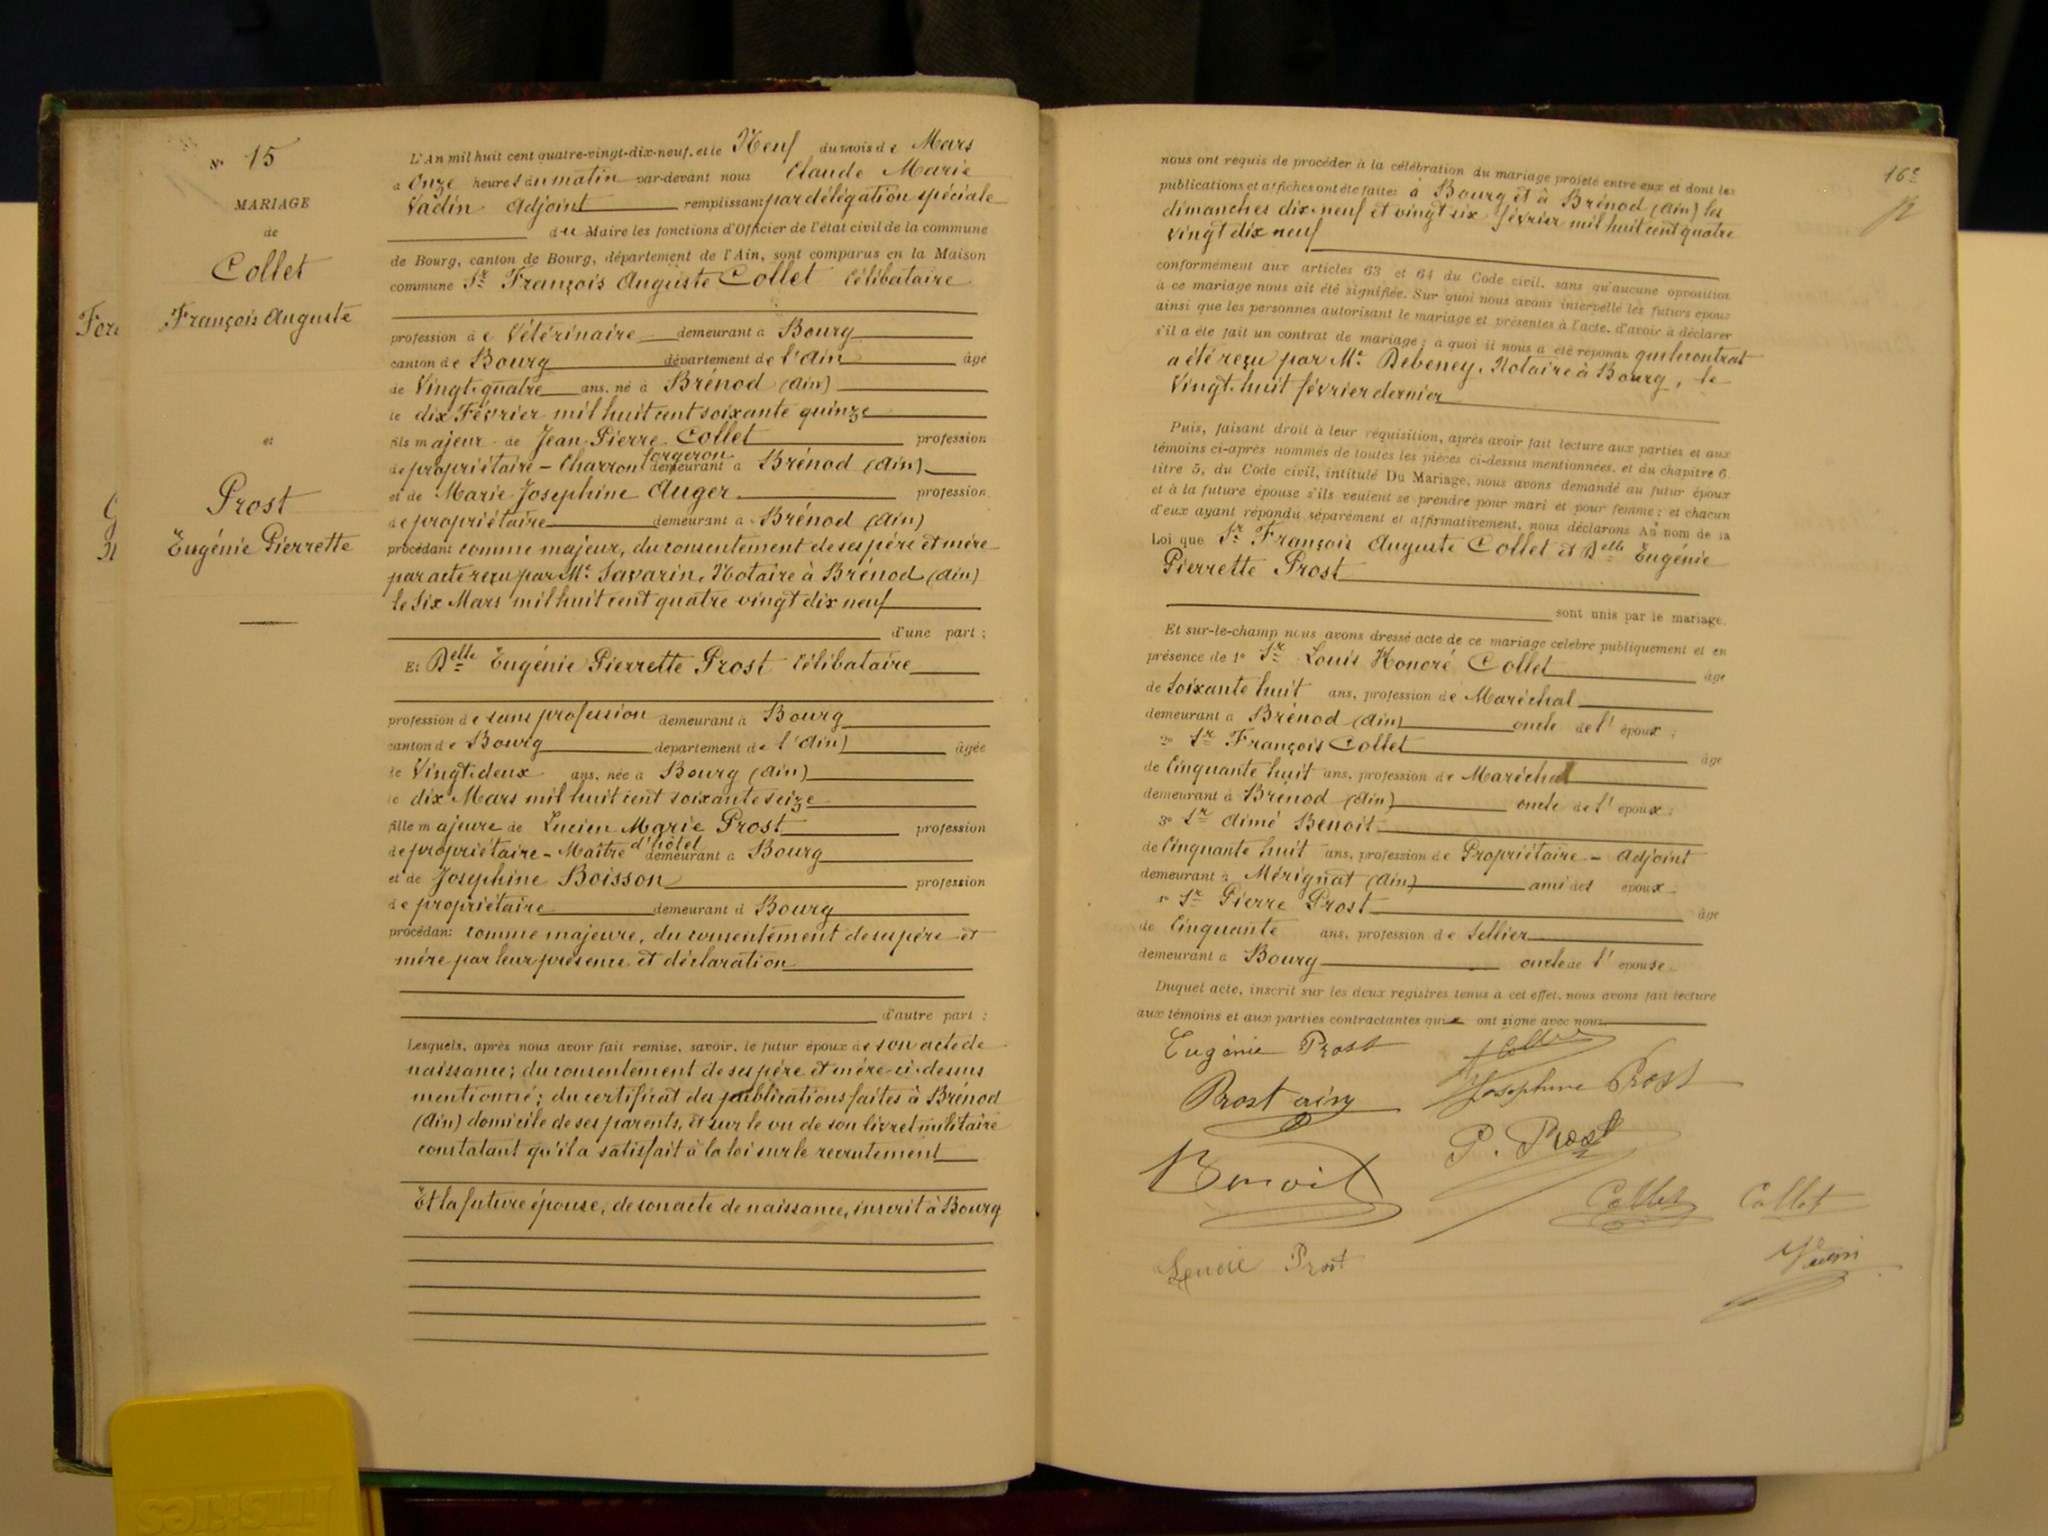 N° 15
MARIAGE
de
Collet
François Auguste
et
Prost
Eugénie Pierrette
L'An mil huit cent quatre-vingt-dix-neuf, et le Neuf du mois de Mars
à Onze heures du matin par-devant nous Claude Marie
Vadin Adjoint remplissant par délégation spéciale
du Maire les fonctions d'Officier de l'état civil de la commune
de Bourg, canton de Bourg, département de l'Ain, sont comparus en la Maison
commune Sr François Auguste Collet Célibataire
profession de Vétérinaire demeurant à Bourg
canton de Bourg département de l'Ain âgé
de Vingt-quatre ans, né à Brénod (Ain)
le dix Février mil huit cent soixante quinze
fils majeur de Jean-Pierre Collet profession
de propriétaire - Charron forgeron demeurant à Brénod (Ain)
et de Marie Josephine Auger profession
de propriétaire demeurant à Brénod (Ain)
procédant comme majeur, du consentement de ses père et mère
par acte reçu par Me Savarin, Notaire à Brénod (Ain)
le Six Mars mil huit cent quatre vingt dix neuf
d'une part ;
Et Delle Eugénie Pierrette Prost Célibataire
profession de sans profession demeurant à Bourg
canton de Bourg département de l'Ain) âgée
de Vingt-deux ans, née à Bourg (Ain)
le dix Mars mil huit cent soixante seize
fille majeure de Lucien Marie Prost profession
de propriétaire - Maître d'hôtel demeurant à Bourg
et de Josephine Boisson profession
de propriétaire demeurant à Bourg
procédant comme majeure, du consentement de ses père et
mère par leur présence et déclaration
d'autre part ;
Lesquels, après nous avoir fait remise, savoir, le futur époux de son acte de
naissance ; du consentement de ses père et mère ci-dessus
mentionné ; du certificat des publications faites à Brénod
(Ain) domicile de ses parents, et sur le vu de son livret militaire
constatant qu'il a satisfait à la loi sur le recrutement
Et la future épouse, de son acte de naissance, inscrit à Bourg
16e
nous ont requis de procéder à la célébration du mariage projeté entre eux et dont les
publications et affiches ont été faites à Bourg et à Brénod (Ain) les
dimanches dix-neuf et vingt six février mil huit cent quatre
vingt dix neuf
conformément aux articles 63 et 64 du Code civil, sans qu'aucune opposition
à ce mariage nous ait été signifiée. Sur quoi nous avons interpellé les futurs époux
ainsi que les personnes autorisant le mariage et présentes à l'acte, d'avoir à déclarer
s'il a été fait un contrat de mariage ; à quoi il nous a été répondu que le contrat
a été reçu par Me Debeney, Notaire à Bourg, le
Vingt-huit février dernier
Puis, faisant droit à leur réquisition, après avoir fait lecture aux parties et aux
témoins ci-après nommés de toutes les pièces ci-dessus mentionnées, et du chapitre 6
titre 5, du Code civil, intitulé Du Mariage, nous avons demandé au futur époux
et à la future épouse s'ils veulent se prendre pour mari et pour femme ; et chacun
d'eux ayant répondu séparément et affirmativement, nous déclarons Au nom de la
Loi que Sr François Auguste Collet et Delle Eugénie
Pierrette Prost
sont unis par le mariage.
Et sur-le-champ nous avons dressé acte de ce mariage célébré publiquement et en
présence de 1° Sr Louis Honoré Collet âgé
de Soixante huit ans, profession de Maréchal
demeurant à Brénod (Ain) oncle de l'époux ;
2° Sr François Collet âgé
de Cinquante huit ans, profession de Maréchal
demeurant à Brénod (Ain) oncle de l'époux ;
3° Sr Aimé Benoit
de Cinquante huit ans, profession de Propriétaire - Adjoint
demeurant à Mérignat (Ain) ami des époux ;
Sr Pierre Prost âgé
de Cinquante ans, profession de Sellier
demeurant à Bourg oncle de l'épouse
Duquel acte, inscrit sur les deux registres tenus à cet effet, nous avons fait lecture
aux témoins et aux parties contractantes qui ont signé avec nous
Eugénie Prost A Collet
Josephine Prost
Prost
P. Prost
Benoit
Collet Collet
Prost